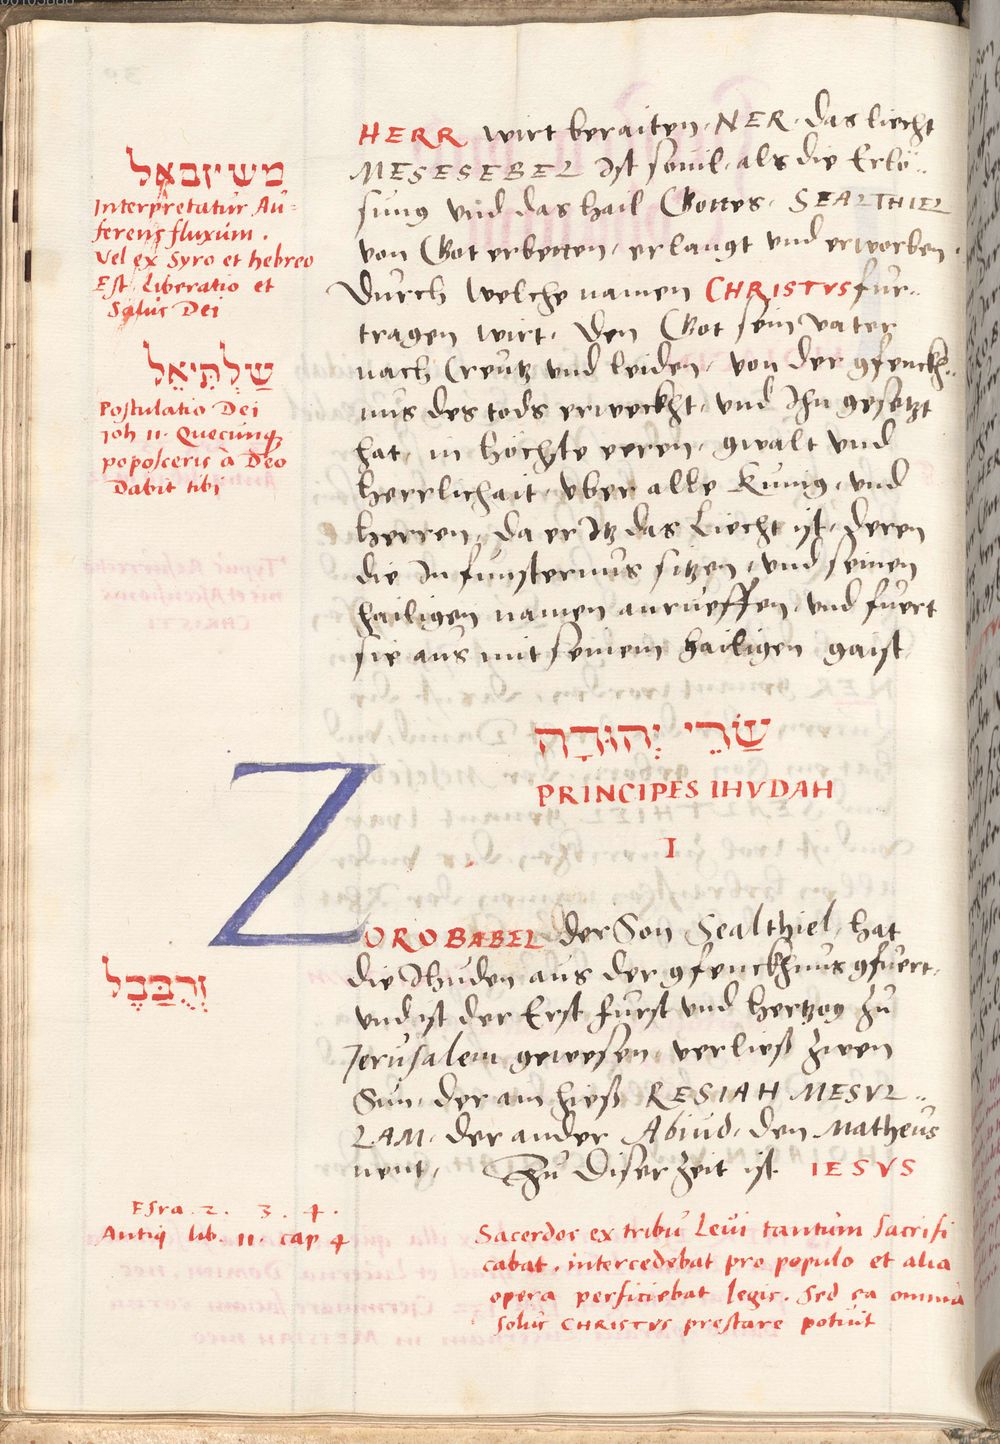 HERR wirt beraiten, NER, das liecht
MESESEBEL Ist souil, als die Erlo¨..
sung vnd das hail Gottes, SEALTHIEL
von Got erbetten, erlangt vnd erworben,
Durch welche namen CHRISTVS fur..
tragen wirt, Den Got sein vater
nach Creutz vnd leiden, von der gfenckh..
nus des tods erweckht, vnd Ihn gesetzt
hat, in hochste eeren, gwalt vnd
herrlichait, vber alle Kunig, vnd
herren, da er Itz das Liecht ist, deren
die In funsternus sitzen, vnd seinen
hailigen namen anrueffen, vnd fuert
sie aus mit seinem hailigen gaist
משיזבאל
Interpretatur Au-
ferens fluxum.
Vel ex Syro et hebreo
Est Liberatio et
Salus Dei
שַׁלְתִּיאֵל
Postulatio Dei
Joh 11. Quecunq;
poposceris à Deo
Dabit tibi
שָׂרֵי יְהוּדָה
PRINCIPES IHVDAH
I
ZOROBABEL der Son Sealthiel, hat
die Ihuden aus der gfenckhnus gfuert,
vnd ist der Erst furst vnd hertzog zu
Jerusalem gewesen, verließ zwen
Sun, der ain hieß RESIAH MESVL..
LAM, der ander Abiud, den Matheus
nent, Zu diser zeit ist IESVS
זְרֻבַּבֶל
Esra. 2. 3. 4.
Antiq lib. 11. cap 4
Sacerdos ex tribu Leui tantum sacrifi
cabat, intercedebat pro populo et alia
opera perficiebat legis. Sed ea omnia
solus CHRISTVS prestare potuit